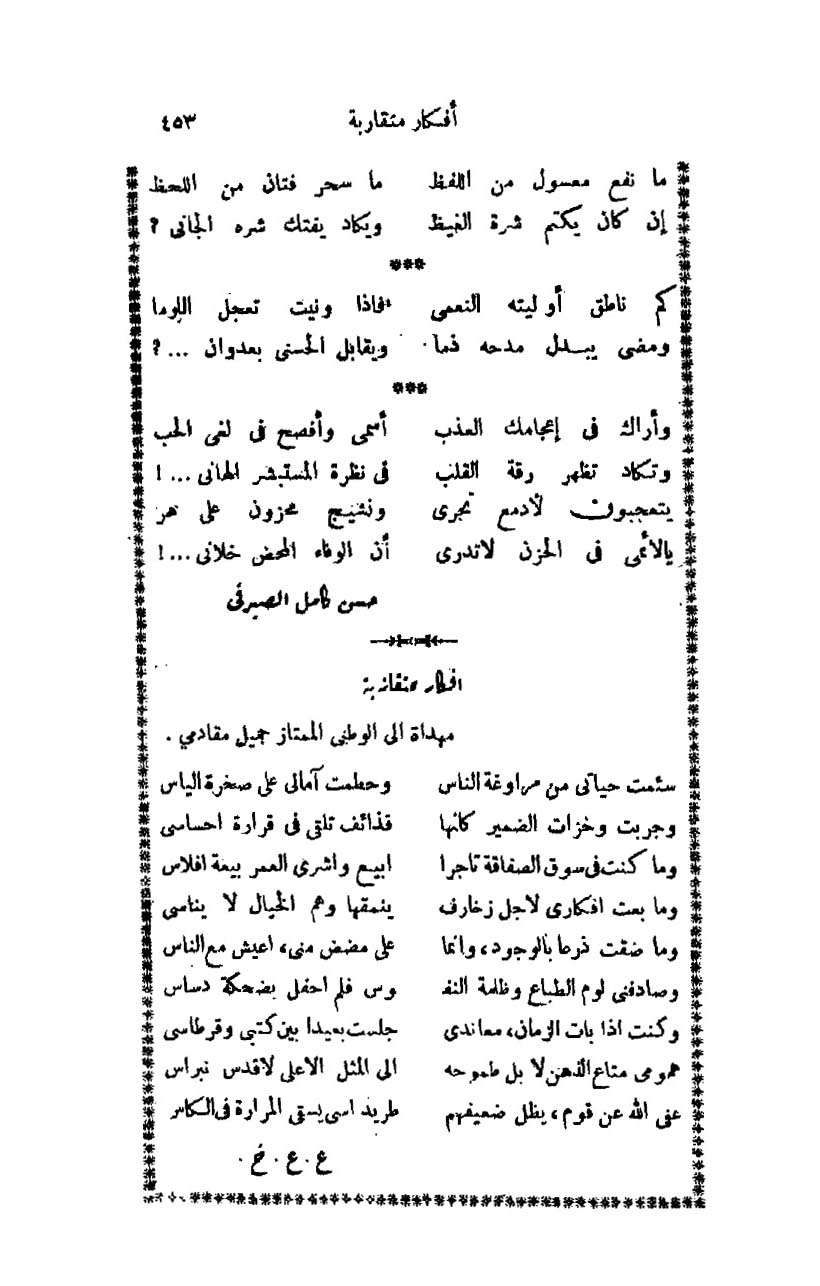 أفكار متقاربة ٤٥٣
ما نفع معسول من اللفظ ما سحر فتان من اللحظ
إن كان يكتم شرة الغيظ ويكاد يفتك شره الجانى ؟
***
كم ناطق أوليته النعمى فاذا ونيت تعجل اللوما
ومضى يبدل مدحه ذما ويقابل الحسنى بعدوان ...؟
***
وأراك فى إعجامك العذب أسمى وأفصح فى لغى الحب
وتكاد تظهر رقة القلب فى نظرة المستبشر الهانى ...!
يتعجبون لأدمع تجرى ونشيج محزون على هر
يالأعمى فى الحزن لاتدرى أن الوفاء المحض خلانى ...!
حسن كامل الصيرفى
افكار متقاربة
مهداة الى الوطنى الممتاز جميل مقادمي .
سئمت حياتى من مراوغة الناس وحطمت آمالى على صخرة الياس
وجربت وخزات الضمير كأنها قذائف تلقى فى قرارة احساسى
وما كنت فى سوق الصفاقة تاجرا ابيع واشرى العمر بيعة افلاس
وما بعت افكارى لاجل زخارف ينمقها وهم الخيال لا يناسى
وما ضقت ذرعا بالوجود، وانما على مضض منى، اعيش مع الناس
وصادفنى لوم الطباع وظلمة النفـ وس فلم احفل بضحكة دساس
وكنت اذا بات الزمان، معاندى جلست بعيدا بين كتبى وقرطاسى
همومى متاع الذهن لا بل طموحه الى المثل الاعلى لاقدس نبراس
عفى الله عن قوم، يظل ضعيفهم طريد اسى يسقى المرارة فى الكاس
ع . ع . خ .